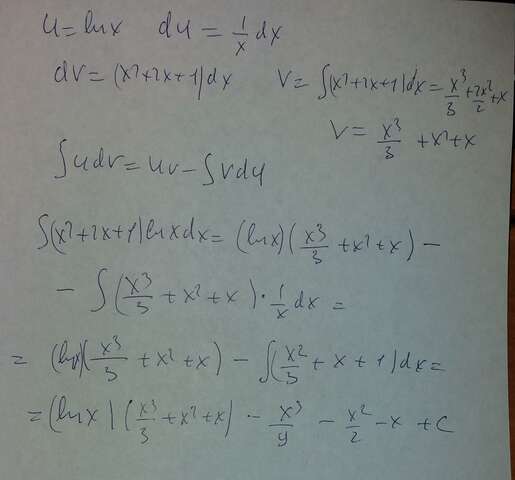 u = ln x   du = 1/x dx
dv = (x²+2x+1)dx   v = ∫(x²+2x+1)dx = x³/3 + 2x²/2 + x
v = x³/3 + x² + x
∫udv = uv - ∫vdu
∫(x²+2x+1)ln x dx = (ln x)(x³/3 + x² + x) -
- ∫(x³/3 + x² + x) · 1/x dx =
= (ln x)(x³/3 + x² + x) - ∫(x²/3 + x + 1)dx =
= (ln x)(x³/3 + x² + x) - x³/9 - x²/2 - x + C